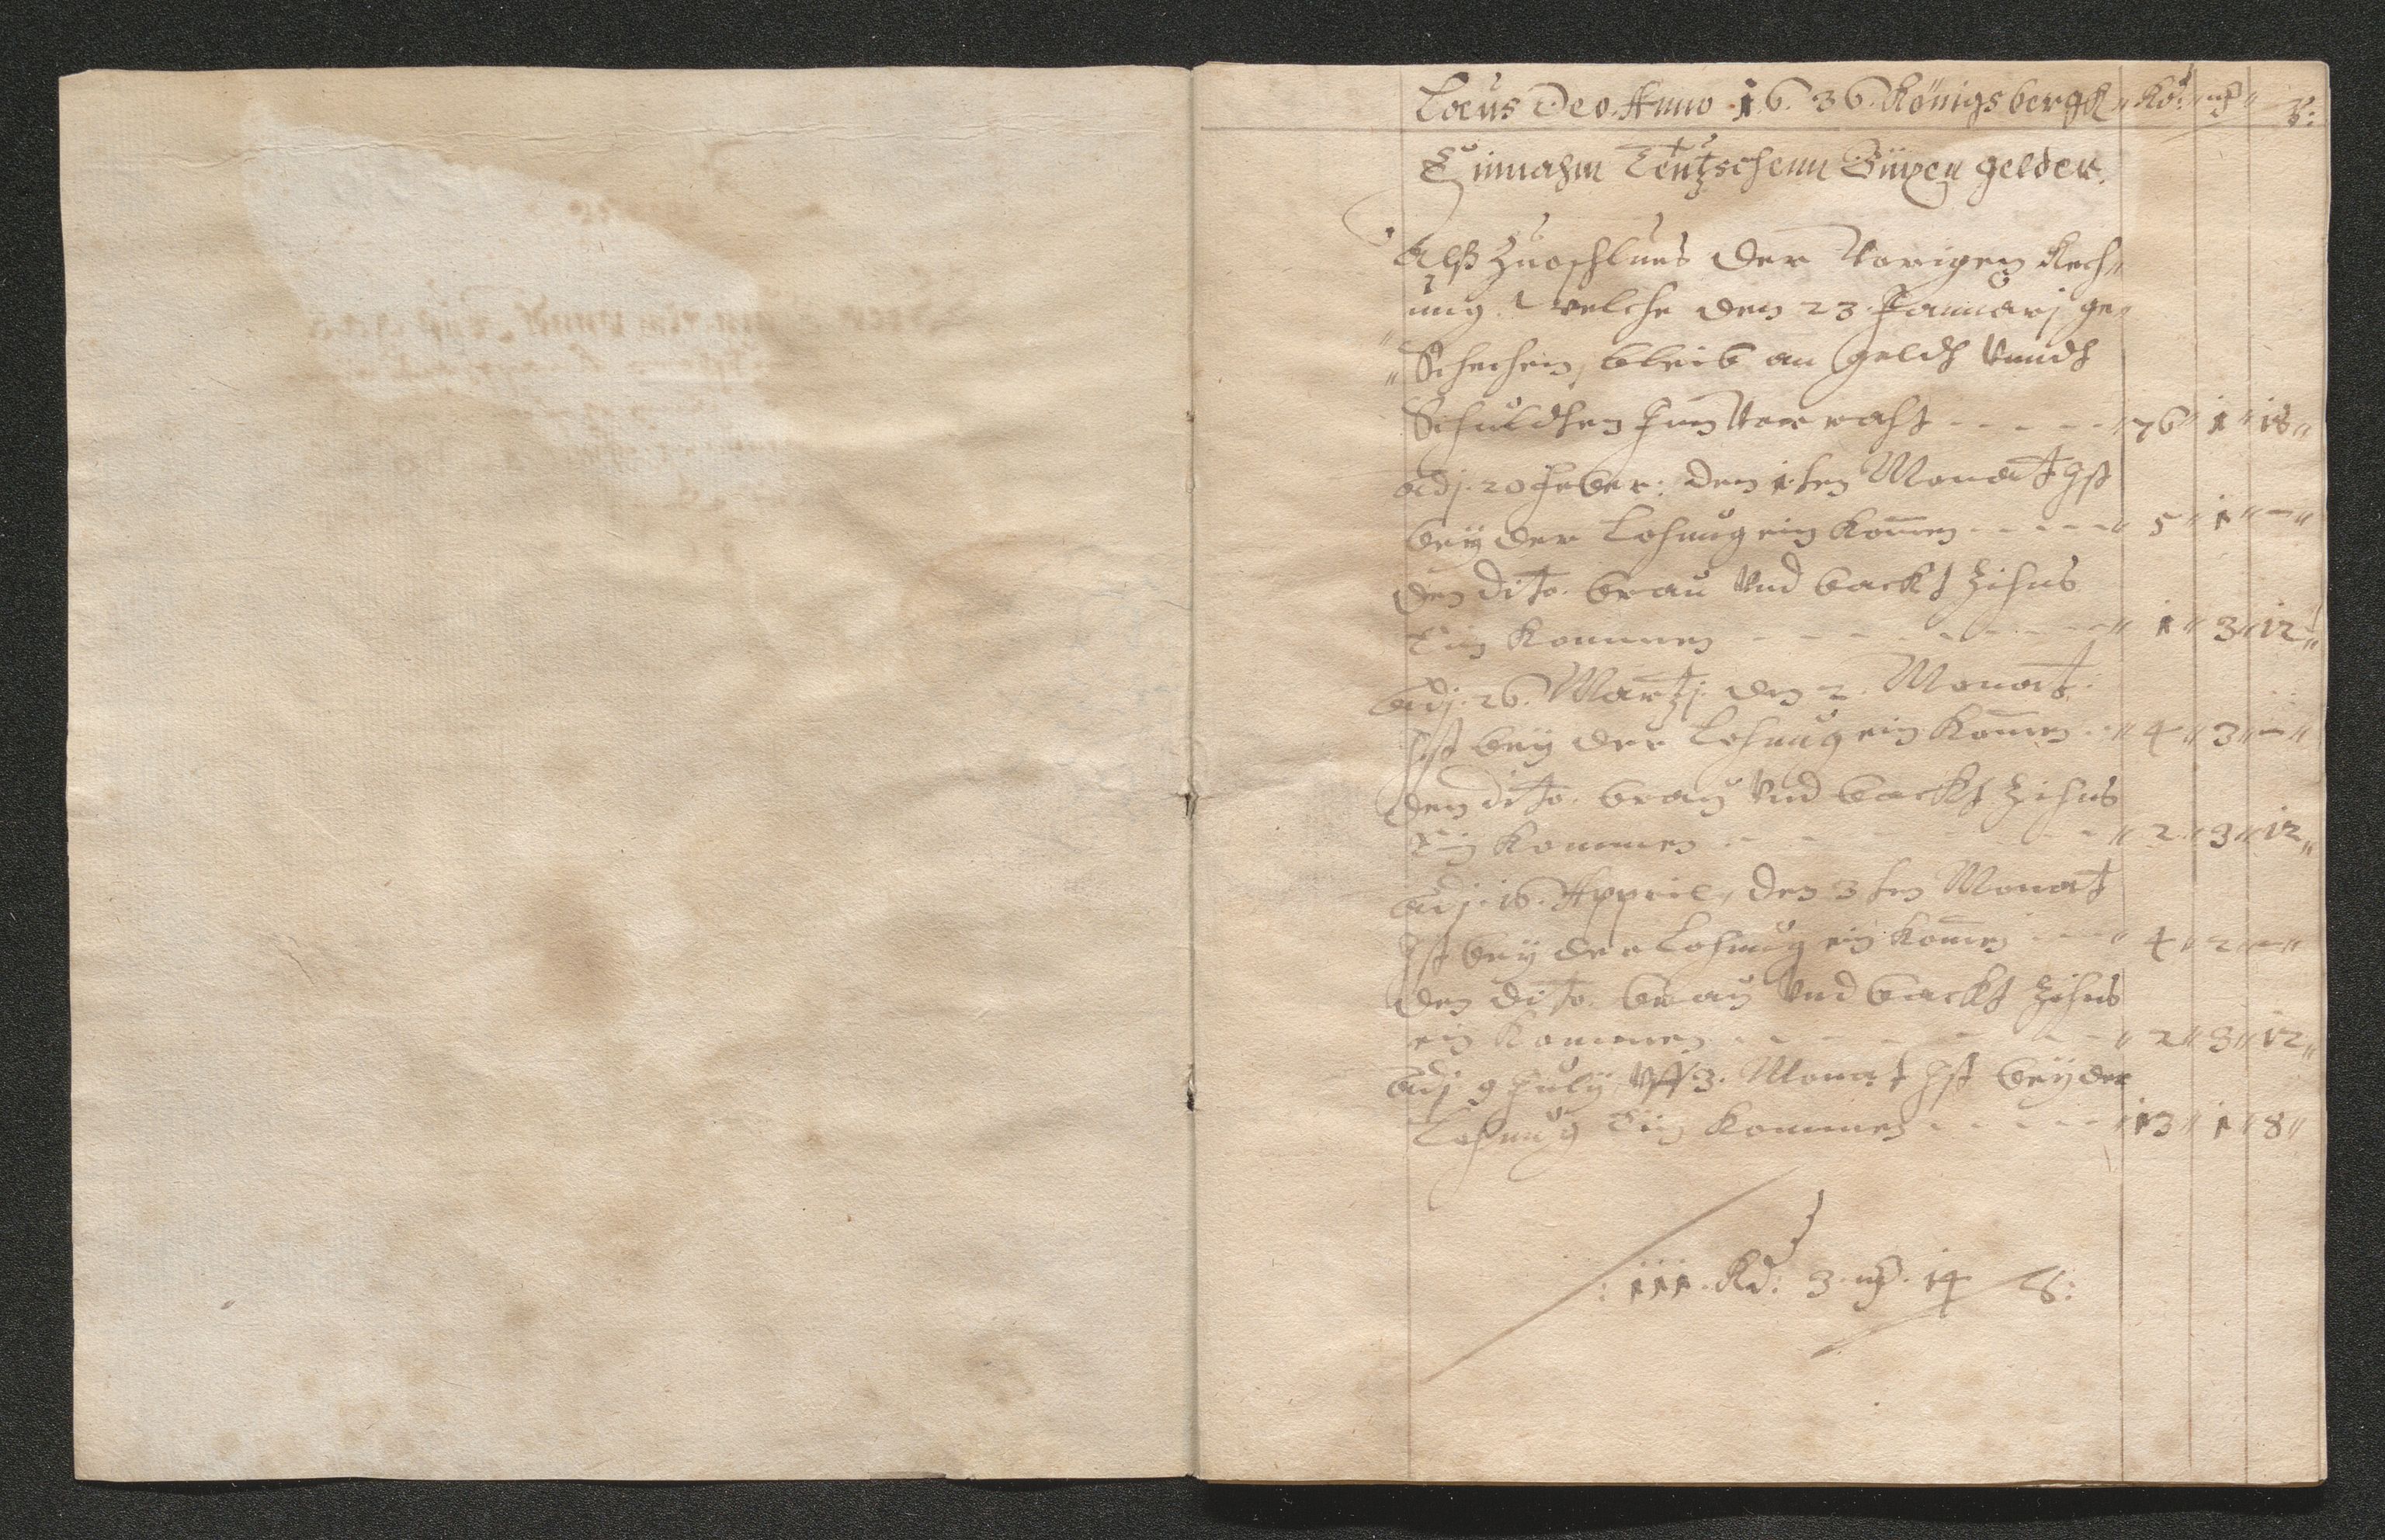 Laus Deo Anno 1636 Königsbergk Rd: mȹ ß:
Einnahm Teutzschenn Büxen gelder.
Alß Zuoschlus der Vorigen Rech„
nung. welche den 23 Januarj ge„
„Schehen, bleib an geldt Vnndt
Schuldten Jm Vorraht - - - - - 76 " 1 " 18 "
adj. 20 Feber: den 1 ten Monat Jst
bey der Lohnung ein kom̅en - - - - - 5 " 1 " — "
den dito. brau Vnd backt Zihns
Ein kommen - - - - - - - 1 " 3 " 12 "
adj. 26. Martzj. den 2. Monat.
Jst bey der Lohnung ein kom̅en - 4 " 3 " — "
den dito. brau Vnd backt Zihns
Ein kommen - - - - - 2 " 3 " 12 "
adj. 16. Appril, den 3 ten Monat
Jst bey der Lohnung ein kom̅en - - 4 " 2 " — "
den dito. brau Vnd backt Zihns
ein kommen - - - - - - 2 " 3 " 12 "
adj 9 July Vff 3. Monat Jst bey der
Lohnung Ein kommen - - - - - 13 " 1 " 8 "
: 111. Rd: 3. mȹ. 14 ß: